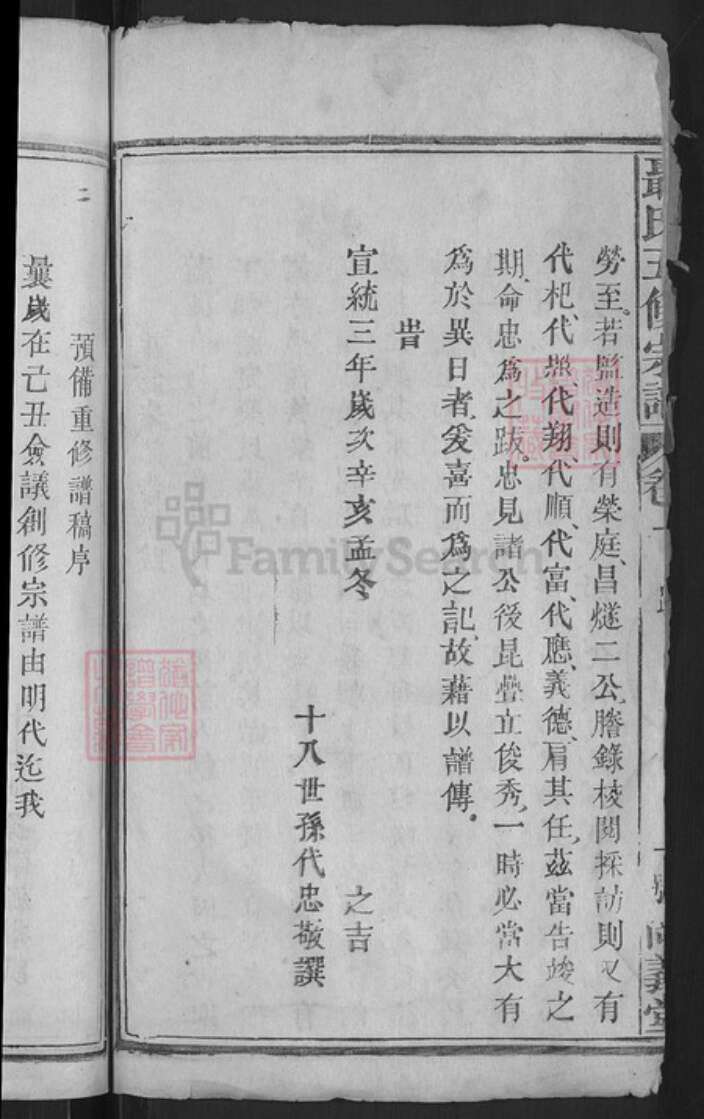 聶氏五修宗譜 卷一 跋 尚義堂
勞至若監造則有榮庭、昌燧二公、謄錄校閱採訪則又有
代杞、代燕、代翔、代順、代富、代應、義德、肩其任、茲當告竣之
期、命忠爲之跋。忠見諸公後昆疊立俊秀、一時必當大有
爲於異日者、爰喜而爲之記、故藉以譜傳。
旹
宣統三年歲次辛亥孟冬 之吉
十八世孫代忠敬譔
二
預備重修譜稿序
曩歲在己丑僉議創修宗譜由明代迄我
FamilySearch